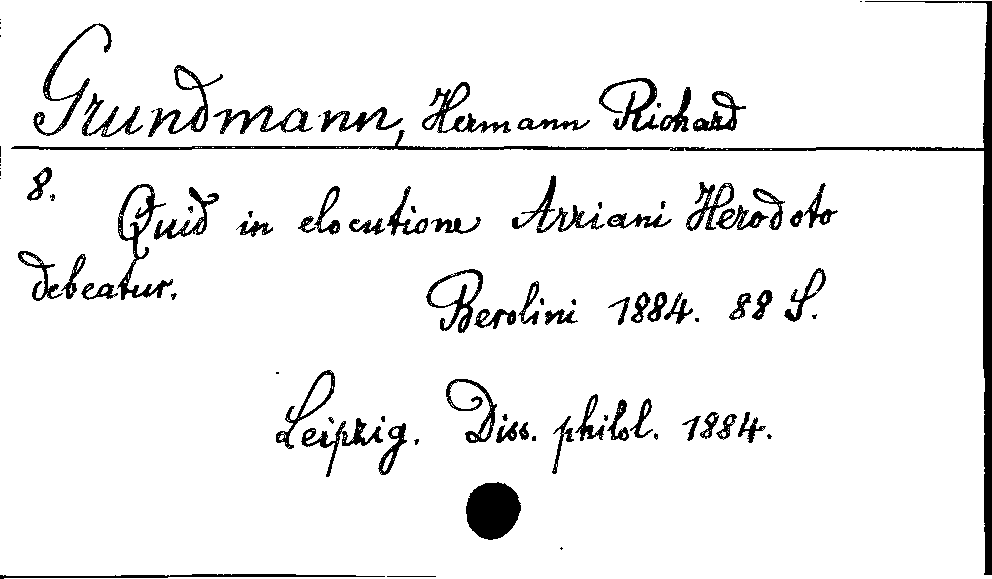 Grundmann, Hermann Richard
8.
Quid in elocutione Arriani Herodoto
debeatur.
Berolini 1884. 88 S.
Leipzig. Diss. philol. 1884.